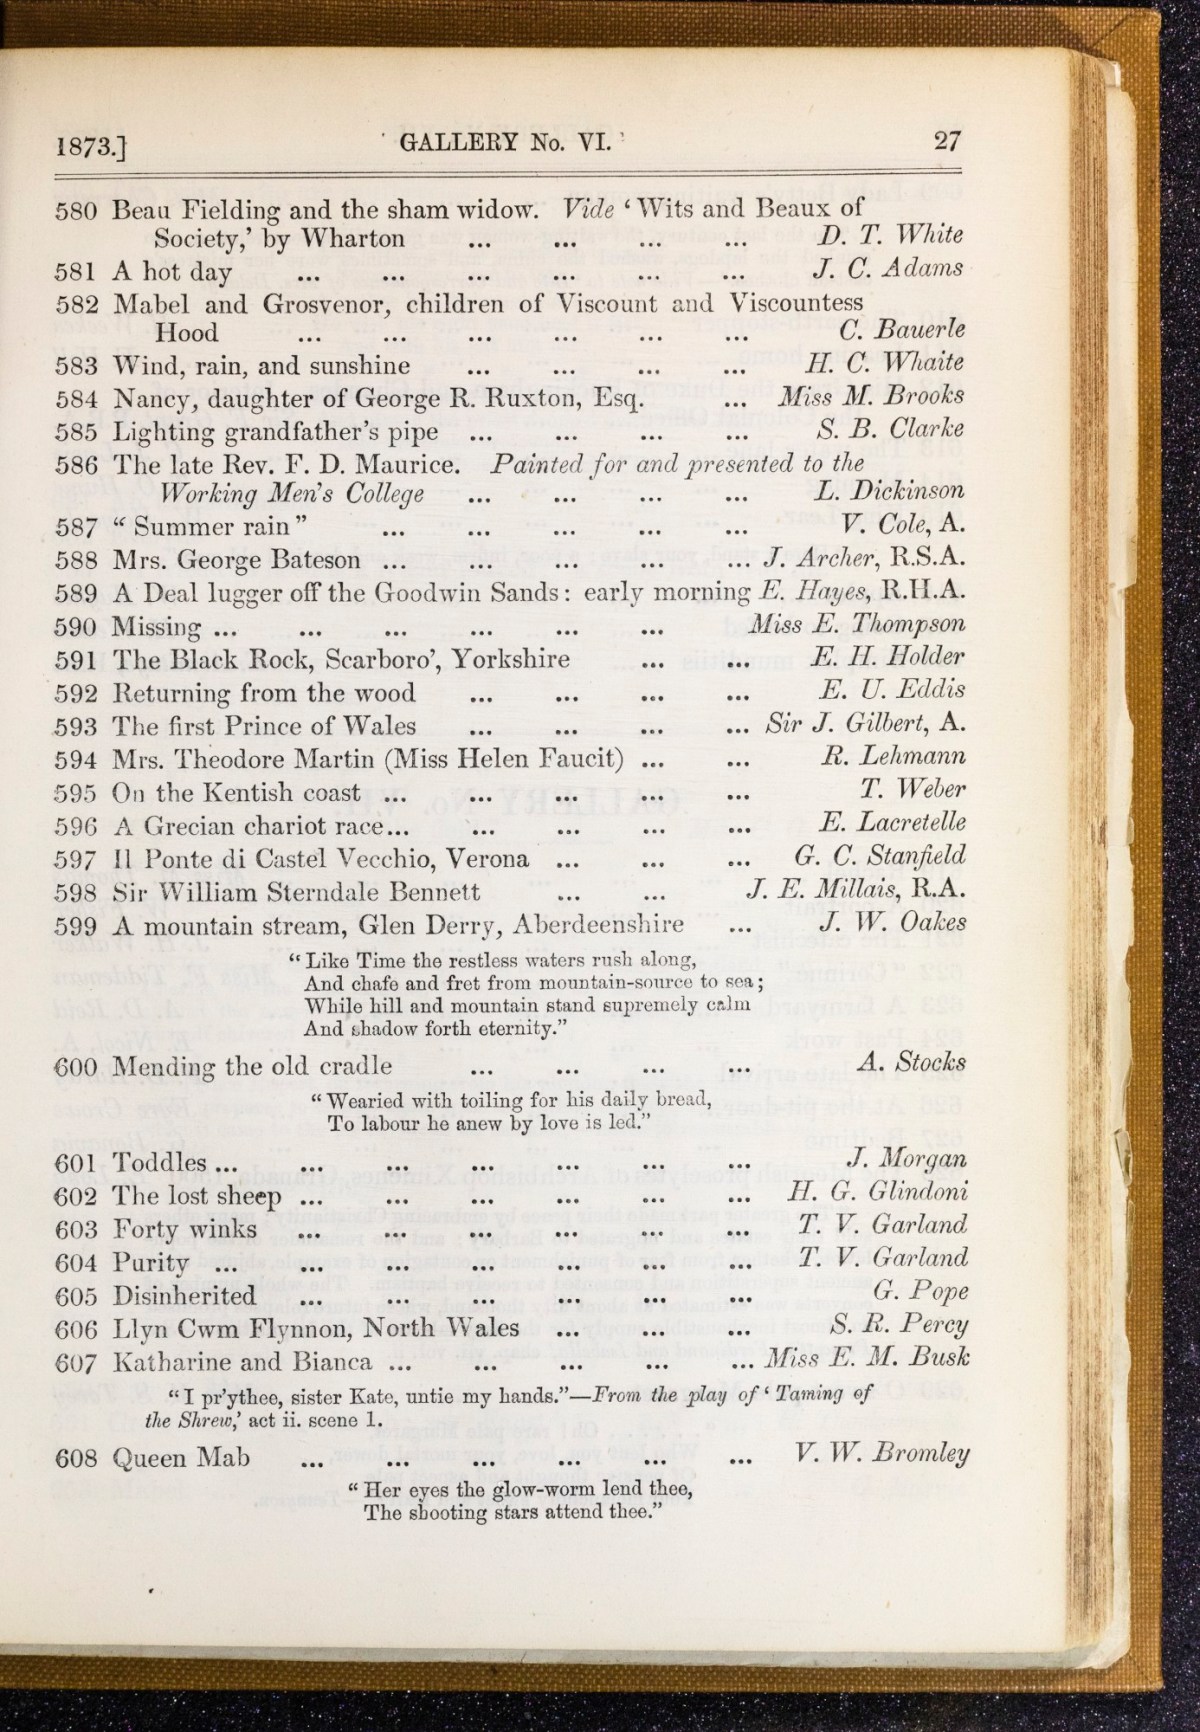 1873.] GALLERY No. VI. 27
580 Beau Fielding and the sham widow. Vide ‘Wits and Beaux of
Society,’ by Wharton ... ... ... ... D. T. White
581 A hot day ... ... ... ... ... ... J. C. Adams
582 Mabel and Grosvenor, children of Viscount and Viscountess
Hood ... ... ... ... ... ... C. Bauerle
583 Wind, rain, and sunshine ... ... ... ... H. C. Whaite
584 Nancy, daughter of George R. Ruxton, Esq. ... Miss M. Brooks
585 Lighting grandfather’s pipe ... ... ... ... S. B. Clarke
586 The late Rev. F. D. Maurice. Painted for and presented to the
Working Men’s College ... ... ... ... L. Dickinson
587 “Summer rain” ... ... ... ... ... V. Cole, A.
588 Mrs. George Bateson ... ... ... ... ... J. Archer, R.S.A.
589 A Deal lugger off the Goodwin Sands: early morning E. Hayes, R.H.A.
590 Missing ... ... ... ... ... ... Miss E. Thompson
591 The Black Rock, Scarboro’, Yorkshire ... ... E. H. Holder
592 Returning from the wood ... ... ... ... E. U. Eddis
593 The first Prince of Wales ... ... ... ... Sir J. Gilbert, A.
594 Mrs. Theodore Martin (Miss Helen Faucit) ... ... R. Lehmann
595 On the Kentish coast ... ... ... ... ... T. Weber
596 A Grecian chariot race... ... ... ... ... E. Lacretelle
597 Il Ponte di Castel Vecchio, Verona ... ... ... G. C. Stanfield
598 Sir William Sterndale Bennett ... ... J. E. Millais, R.A.
599 A mountain stream, Glen Derry, Aberdeenshire ... J. W. Oakes
“Like Time the restless waters rush along,
And chafe and fret from mountain-source to sea;
While hill and mountain stand supremely calm
And shadow forth eternity.”
600 Mending the old cradle ... ... ... ... A. Stocks
“Wearied with toiling for his daily bread,
To labour he anew by love is led.”
601 Toddles ... ... ... ... ... ... ... J. Morgan
602 The lost sheep ... ... ... ... ... ... H. G. Glindoni
603 Forty winks ... ... ... ... ... ... T. V. Garland
604 Purity ... ... ... ... ... ... ... T. V. Garland
605 Disinherited ... ... ... ... ... ... G. Pope
606 Llyn Cwm Flynnon, North Wales ... ... ... S. R. Percy
607 Katharine and Bianca ... ... ... ... ... Miss E. M. Busk
“I pr’ythee, sister Kate, untie my hands.”—From the play of ‘Taming of
the Shrew,’ act ii. scene 1.
608 Queen Mab ... ... ... ... ... ... V. W. Bromley
“Her eyes the glow-worm lend thee,
The shooting stars attend thee.”